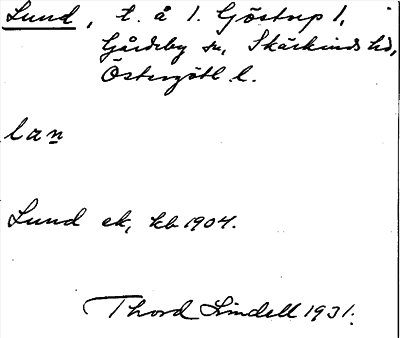 Lund, t. å 1. Göstrup 1,
Gårdeby sn, Skärkinds hd,
Östergötl. l.
lan
Lund ek, kb 1904.
Thord Lindell 1931.